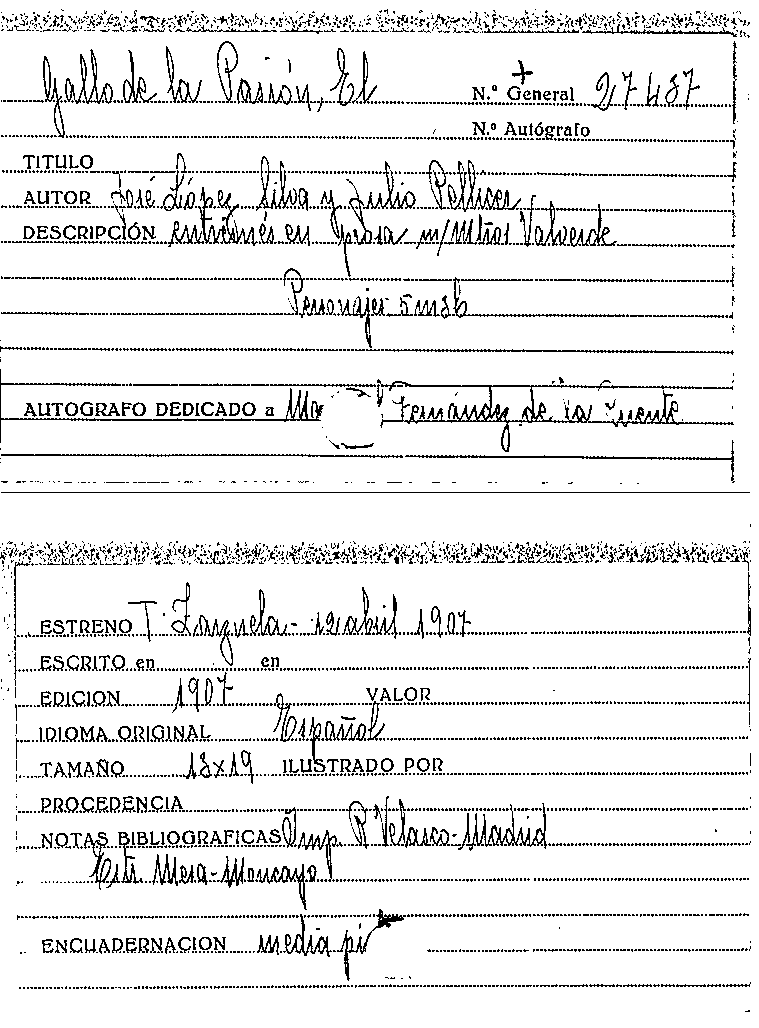 Gallo de la Pasión, El
N.º General 27437
N.º Autógrafo
TITULO
AUTOR José López Silva y Julio Pellicer
DESCRIPCIÓN entremés en prosa m/Mtros Valverde
Personajes 5m3h
AUTOGRAFO DEDICADO a Ma Fernández de la Fuente
ESTRENO T. Zarzuela - 12 abril 1907
ESCRITO en en
EDICION 1907 VALOR
IDIOMA ORIGINAL Español
TAMAÑO 13x19 ILUSTRADO POR
PROCEDENCIA
NOTAS BIBLIOGRAFICAS Imp. R Velasco - Madrid
Estr. Mesa - Moncayo
ENCUADERNACION media pi